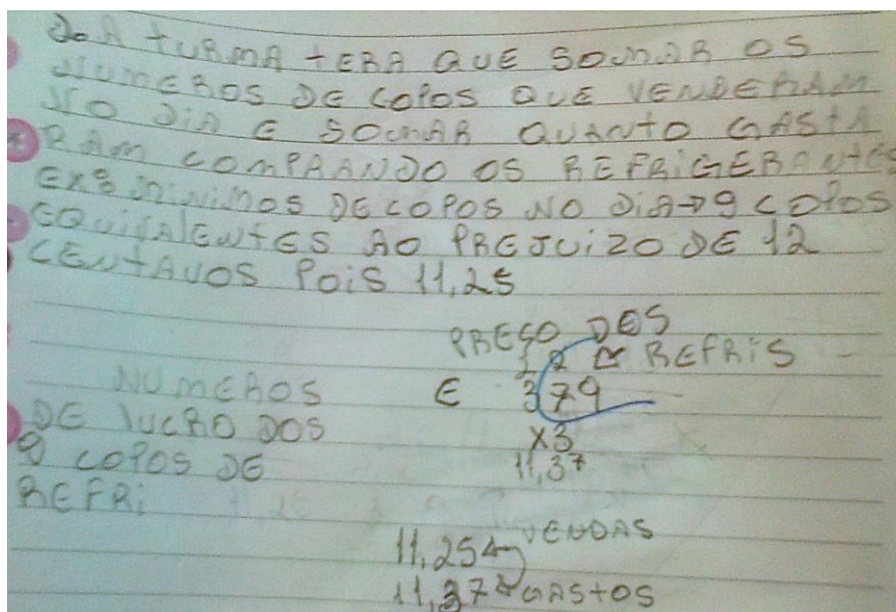 2. A TURMA TERA QUE SOMAR OS
NUMEROS DE COPOS QUE VENDERAM
NO DIA E SOMAR QUANTO GASTA
RAM COMPRANDO OS REFRIGERANTES
EX: MINIMOS DE COPOS NO DIA → 9 COPOS
EQUIVALENTES AO PREJUIZO DE 12
CENTAVOS POIS 11,25
PRESO DOS
12 REFRIS
NUMEROS E 379
DE LUCRO DOS x3
9 COPOS DE 11,37
REFRI
11,25 ← VENDAS
11,37 → GASTOS